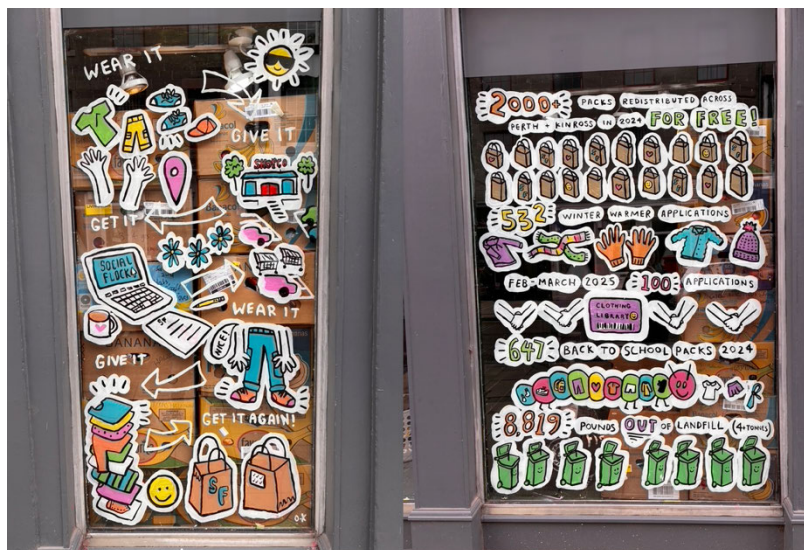 WEAR IT
GIVE IT
SHOP CO
GET IT
SOCIAL
FLOCK
WEAR IT
NICE!
GIVE IT
GET IT AGAIN!
SF
O.K
2000+ PACKS REDISTRIBUTED ACROSS
PERTH + KINROSS IN 2024 FOR FREE!
532 WINTER WARMER APPLICATIONS
FEB-MARCH 2025 100 APPLICATIONS
CLOTHING
LIBRARY
647 BACK TO SCHOOL PACKS 2024
8,819 POUNDS OUT OF LANDFILL (4+TONNES)